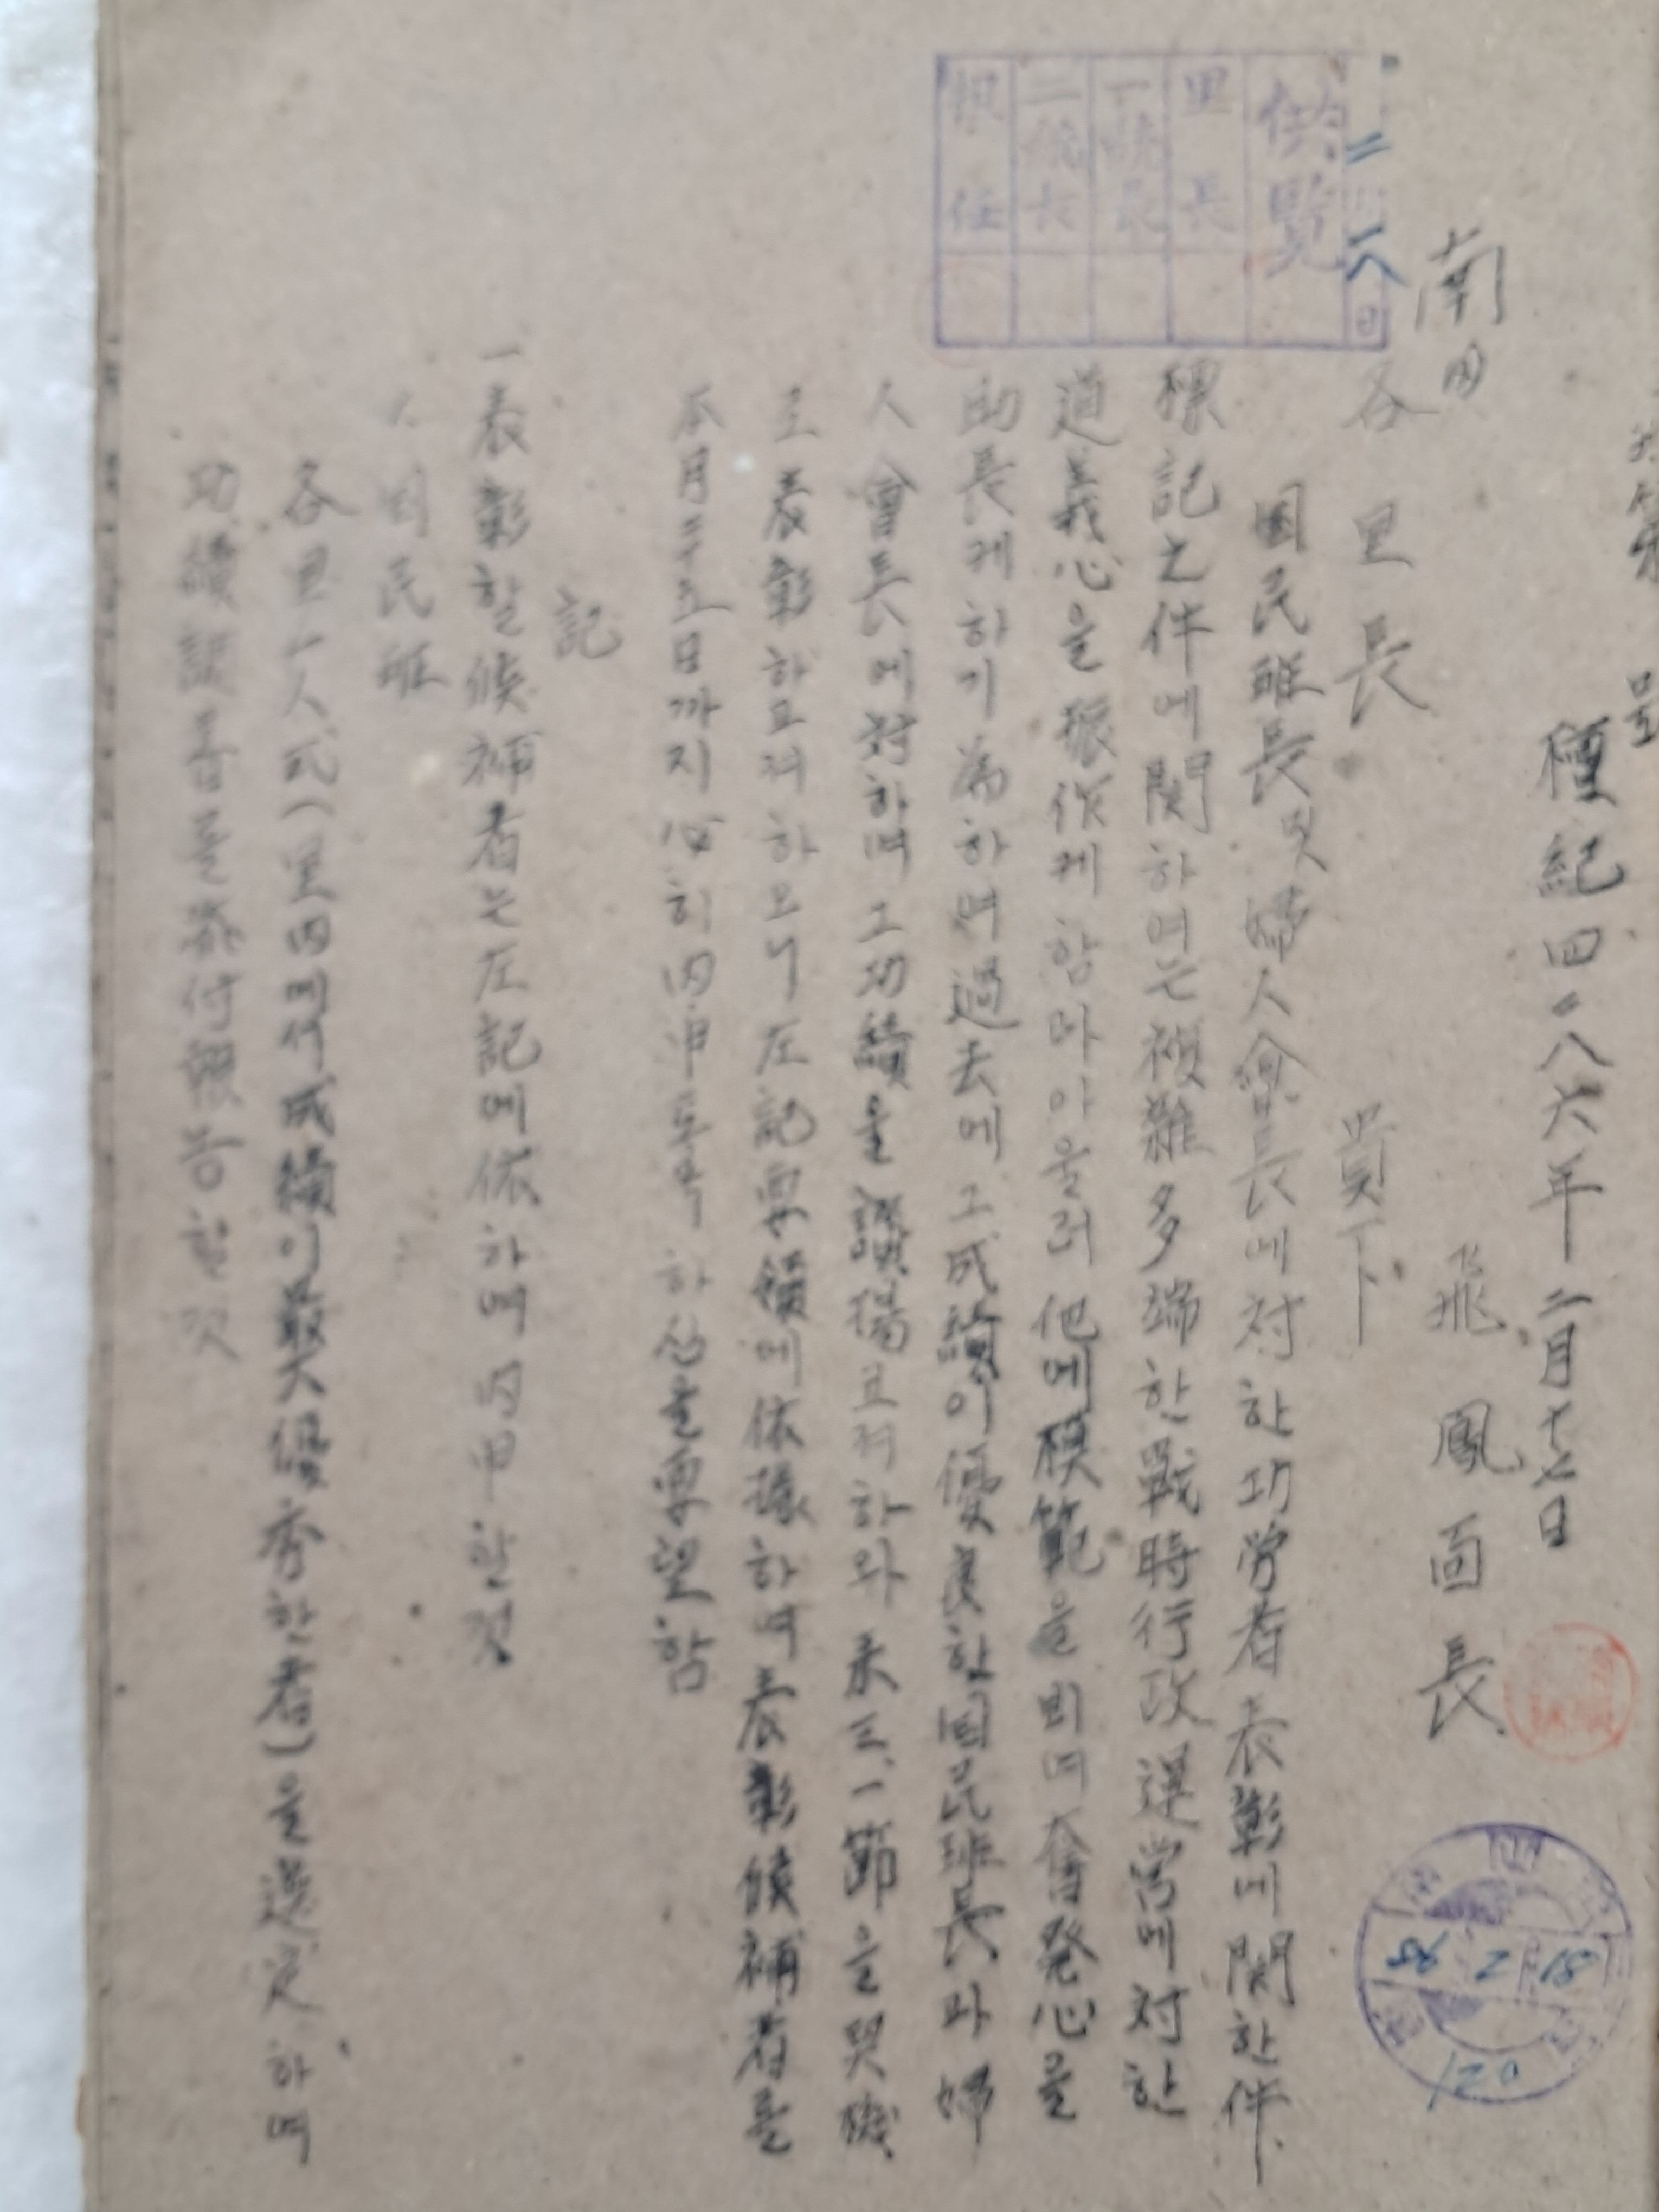 檀紀四二八六年二月十七日
飛鳳面長
南內
各里長 貴下
國民班長및婦人會長에対한功労者表彰에関한件
標記之件에関하여는複雜多端한戰時行政運営에対한
道義心을振作케함과아울러他에模範을뵈여奮発心을
助長케하기爲하여過去에그成績이優良한国民班長과婦
人會長에対하여그功績을讃揚코저하와来三、一節을契機
로表彰하고저하오니左記要領에依據하여表彰候補者를
本月二十五日까지必히内申토록하심을要望함
記
一表彰할候補者는左記에依하여内申할것
国民班
各里一人式(里内에서成績이最大優秀한者)을選定하여
功績調書를添付報告할것
供覽
里長
一統長
二統長
担任
二 一八日
86 2 18
120